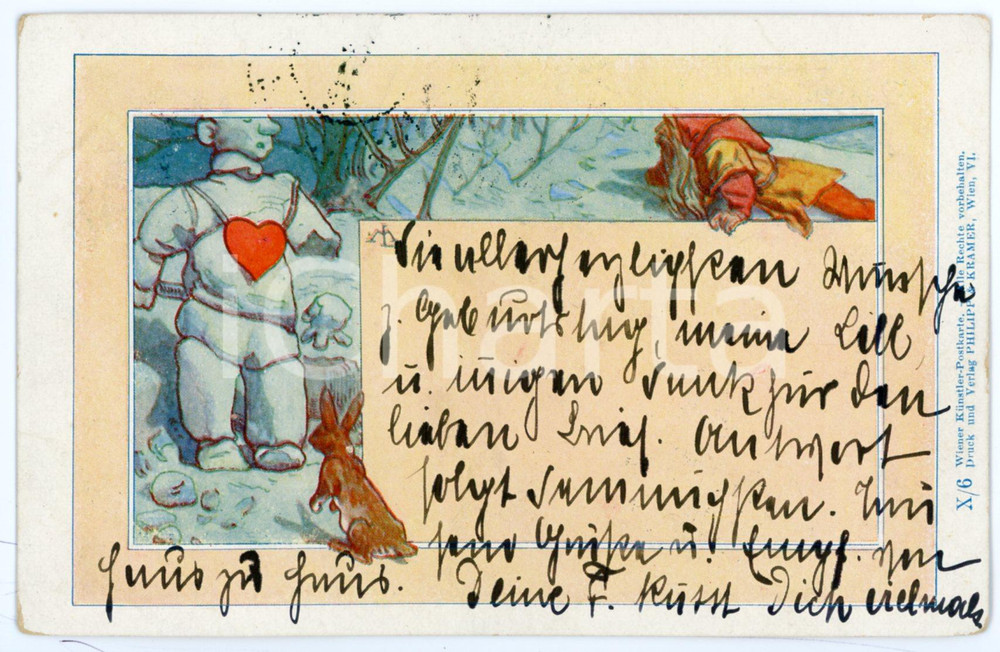 Die allerherzlichsten Wünsche
z. Geburtstag, meine Lill
u. innigen Dank für den
lieben Brief. Antwort
folgt demnächsten. Tau
send Grüße u. Empf. von
Haus zu Haus.
Deine F. küsst Dich vielmals
X/6 Wiener Künstler-Postkarte. Alle Rechte vorbehalten.
Druck und Verlag PHILIPP & KRAMER, Wien, VI.
icharta